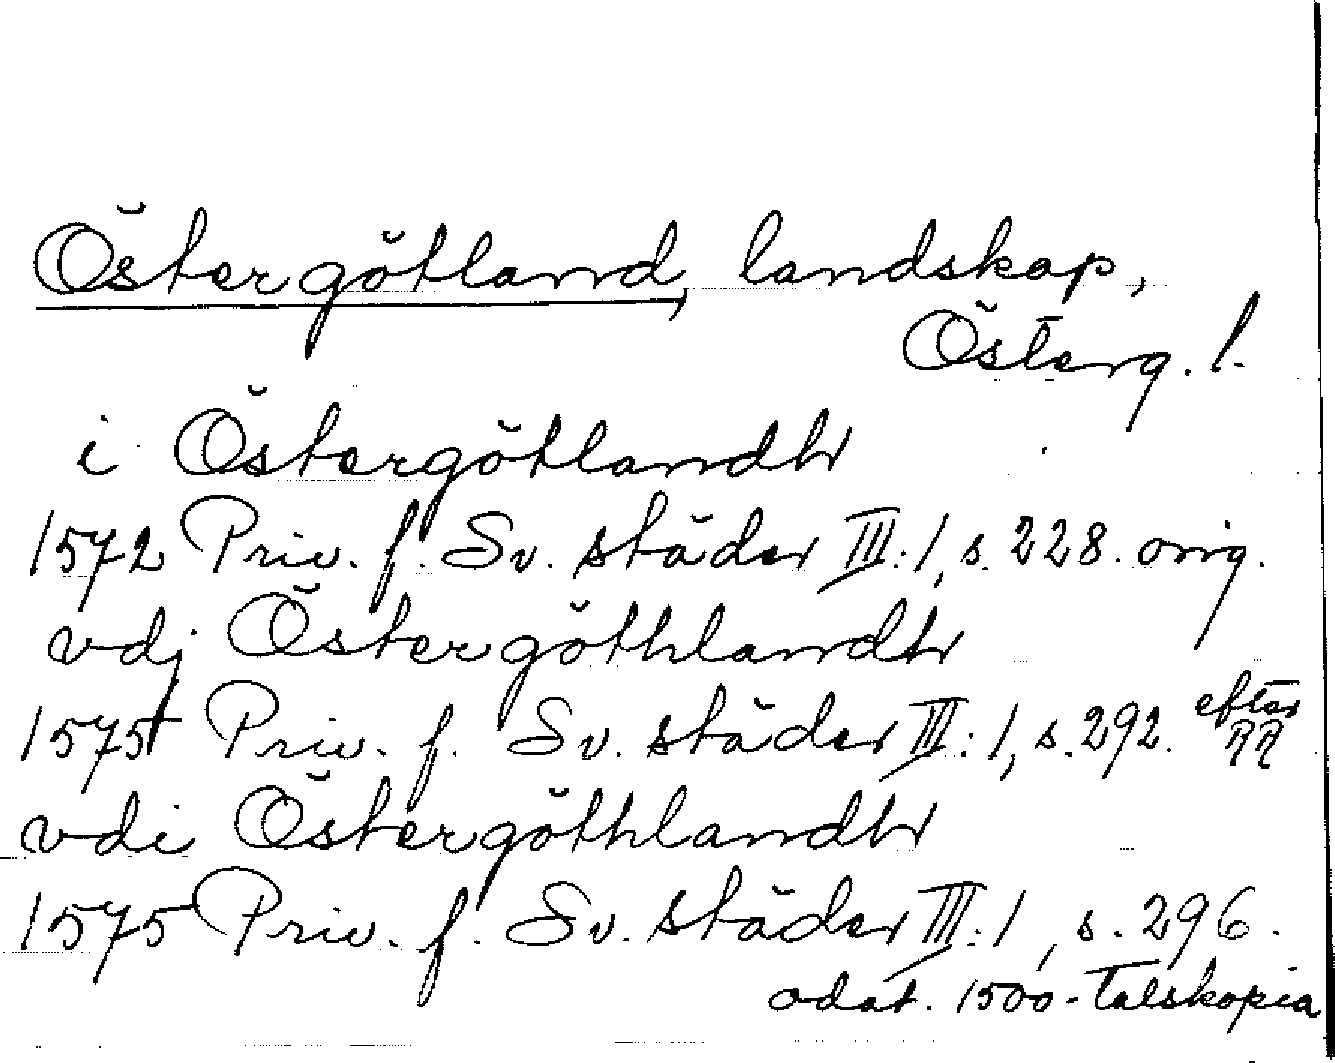 Östergötland, landskap,
Österg. l.
i Östergötlandh
1572 Priv. f. Sv. städer III:1, s. 228. orig.
vdj Östergöthlandh
1575 Priv. f. Sv. städer III:1, s. 292. efter RR
vdi Östergöthlandh
1575 Priv. f. Sv. städer III:1, s. 296.
odat. 1500-talskopia